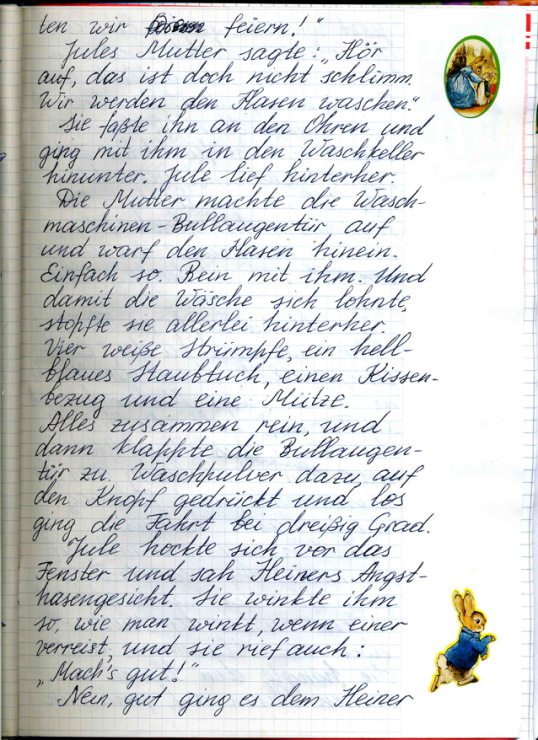 ten wir feiern!"
Jules Mutter sagte: „Hör
auf, das ist doch nicht schlimm.
Wir werden den Hasen waschen."
Sie faßte ihn an den Ohren und
ging mit ihm in den Waschkeller
hinunter. Jule lief hinterher.
Die Mutter machte die Wasch-
maschinen-Bullaugentür auf
und warf den Hasen hinein.
Einfach so. Rein mit ihm. Und
damit die Wäsche sich lohnte,
stopfte sie allerlei hinterher.
Vier weiße Strümpfe, ein hell-
blaues Staubtuch, einen Kissen-
bezug und eine Mütze.
Alles zusammen rein, und
dann klappte die Bullaugen-
tür zu. Waschpulver dazu, auf
den Knopf gedrückt und los
ging die Fahrt bei dreißig Grad.
Jule hockte sich vor das
Fenster und sah Heiners Angst-
hasengesicht. Sie winkte ihm
so, wie man winkt, wenn einer
verreist, und sie rief auch:
„Mach's gut!"
Nein, gut ging es dem Heiner